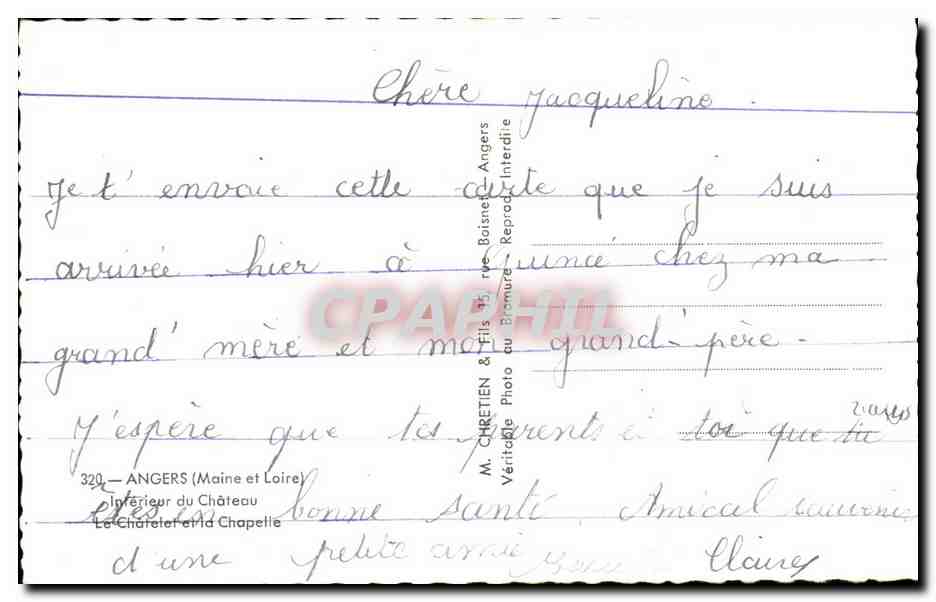 Chère Jacqueline.
Je t'envoie cette carte que je suis
arrivée hier à chez ma
grand'mère et mon grand-père.
J'espère que tes parents et toi que tu
êtes en bonne santé. Amical souvenir
d'une petite amie Claire
320 — ANGERS (Maine et Loire)
Intérieur du Château
Le Châtelet et la Chapelle
M. CHRETIEN & Fils 15, rue Boisnet — Angers
Véritable Photo au Bromure Reprod. Interdite
CPAPHIL